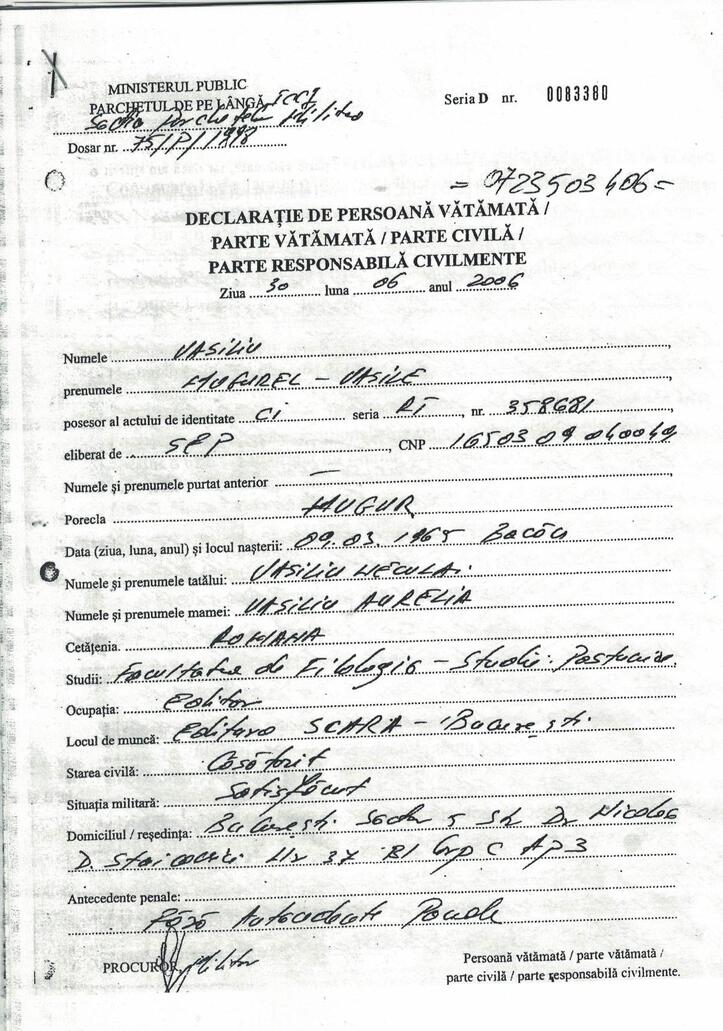 MINISTERUL PUBLIC
PARCHETUL DE PE LÂNGĂ ICCJ
Secția Parchetelor Militare
Seria D nr. 0083380
Dosar nr. 75/P/1998
= 0723503406 =
DECLARAȚIE DE PERSOANĂ VĂTĂMATĂ /
PARTE VĂTĂMATĂ / PARTE CIVILĂ /
PARTE RESPONSABILĂ CIVILMENTE
Ziua 30 luna 06 anul 2006
Numele VASILIU,
prenumele MUGUREL – VASILE,
posesor al actului de identitate CI seria RT, nr. 358681,
eliberat de SEP, CNP 1650309040049
Numele și prenumele purtat anterior —,
Porecla MUGUR
Data (ziua, luna, anul) și locul nașterii: 09.03.1965 Bacău
Numele și prenumele tatălui: VASILIU NECULAI
Numele și prenumele mamei: VASILIU AURELIA
Cetățenia. ROMANA
Studii: Facultatea de Filologie – Studii Postuniv.
Ocupația: Editor
Locul de muncă: Editura SCARA – București
Starea civilă: Căsătorit
Situația militară: Satisfăcut
Domiciliul / reședința: București Sector 5 Str Dr Nicolae
D. Staicovici Nr 37 Bl Grp C AP 3
Antecedente penale:
Fără Antecedente Penale
PROCUROR, Militar
Persoană vătămată / parte vătămată /
parte civilă / parte responsabilă civilmente.